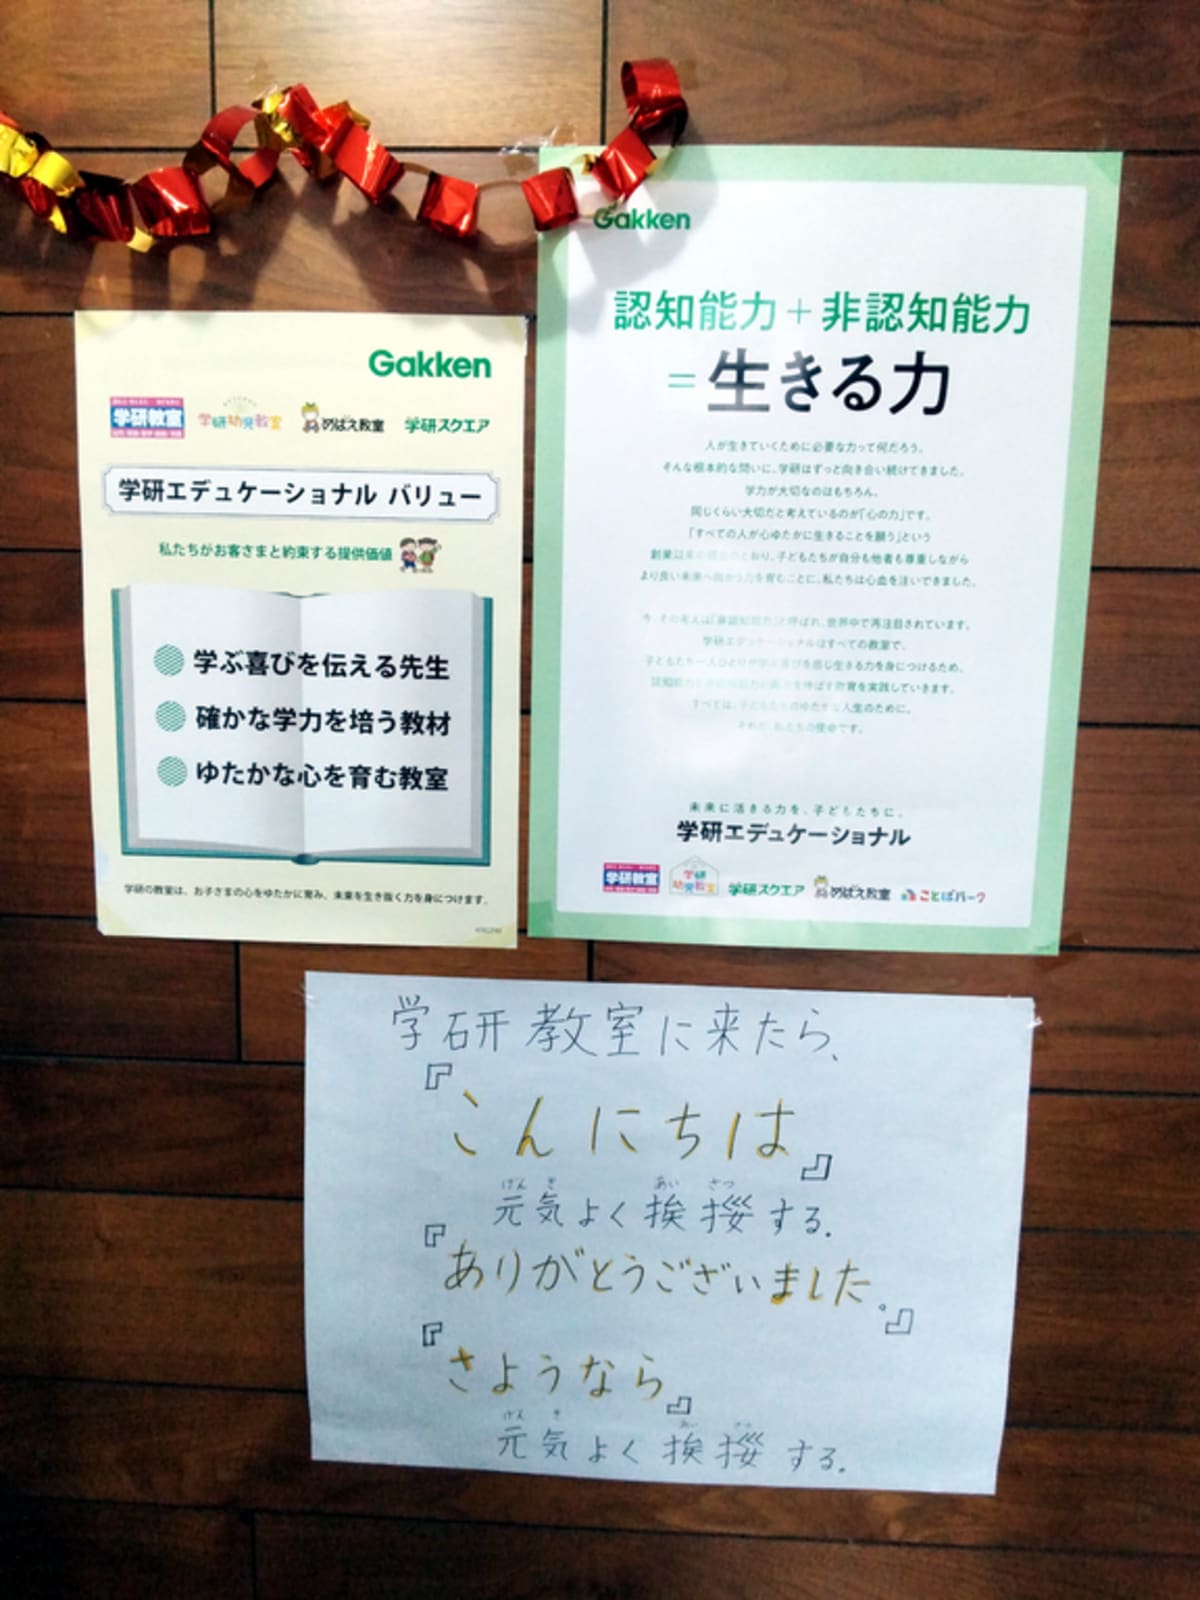 Gakken
学研教室
学研幼児教室
めばえ教室
学研スクエア
学研エデュケーショナル バリュー
私たちがお客さまと約束する提供価値
学ぶ喜びを伝える先生
確かな学力を培う教材
ゆたかな心を育む教室
学研の教室は、お子さまの心をゆたかに育み、未来を生き抜く力を身につけます。
Gakken
認知能力+非認知能力
=生きる力
人が生きていくために必要な力って何だろう。
そんな根本的な問いに、学研はずっと向き合い続けてきました。
学力が大切なのはもちろん、
同じくらい大切だと考えているのが「心の力」です。
「すべての人が心ゆたかに生きることを願う」という
創業以来の理念のとおり、子どもたちが自分も他者も尊重しながら
より良い未来へ向かう力を育むことに、私たちは心血を注いできました。
今、その考えは「非認知能力」と呼ばれ、世界中で再注目されています。
学研エデュケーショナルはすべての教室で、
子どもたち一人ひとりが学ぶ喜びを感じ生きる力を身につけるため、
認知能力と非認知能力の両方を伸ばす教育を実践していきます。
すべては、子どもたちのゆたかな人生のために。
それが、私たちの使命です。
未来に活きる力を、子どもたちに。
学研エデュケーショナル
学研教室
学研
幼児教室
学研スクエア
めばえ教室
ことばパーク
学研教室に来たら、
『こんにちは』
げん き あい さつ
元気よく挨拶する。
『ありがとうございました。』
『さようなら』
げん き あい さつ
元気よく挨拶する。